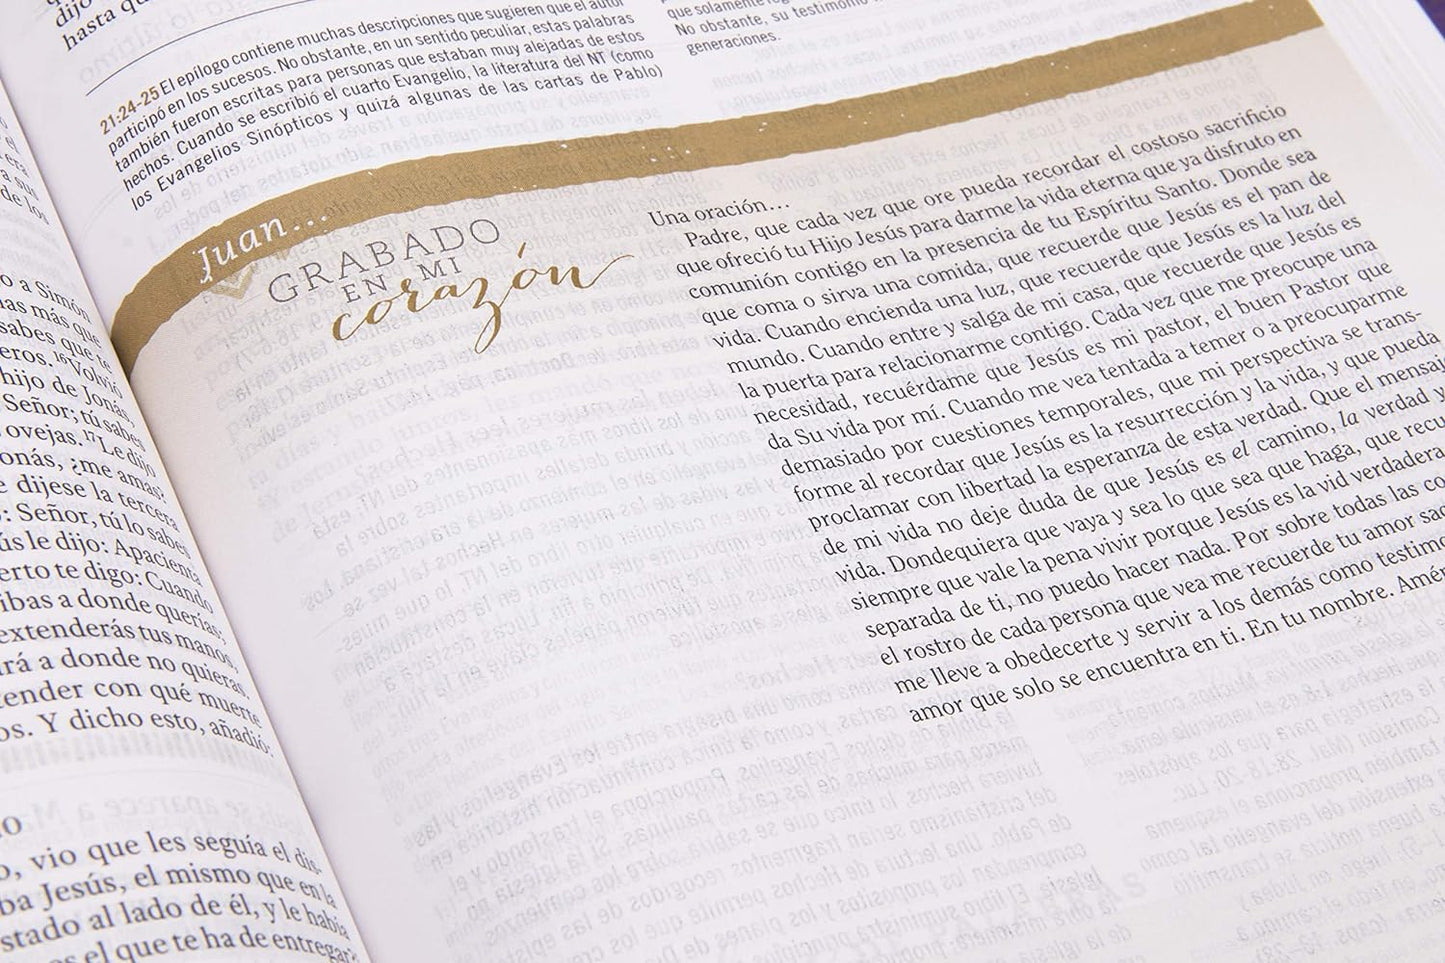 dijo
hasta qu
21:24-25 El epílogo contiene muchas descripciones que sugieren que el autor
participó en los sucesos. No obstante, en un sentido peculiar, estas palabras
también fueron escritas para personas que estaban muy alejadas de estos
hechos. Cuando se escribió el cuarto Evangelio, la literatura del NT (como
los Evangelios Sinópticos y quizá algunas de las cartas de Pablo)
que solamente
No obstante, su testimonio
generaciones.
Juan...
GRABADO
EN MI
corazón
Una oración...
Padre, que cada vez que ore pueda recordar el costoso sacrificio
que ofreció tu Hijo Jesús para darme la vida eterna que ya disfruto en
comunión contigo en la presencia de tu Espíritu Santo. Donde sea
que coma o sirva una comida, que recuerde que Jesús es el pan de
vida. Cuando encienda una luz, que recuerde que Jesús es la luz del
mundo. Cuando entre y salga de mi casa, que recuerde que Jesús es
la puerta para relacionarme contigo. Cada vez que me preocupe una
necesidad, recuérdame que Jesús es mi pastor, el buen Pastor que
da Su vida por mí. Cuando me vea tentada a temer o a preocuparme
demasiado por cuestiones temporales, que mi perspectiva se trans-
forme al recordar que Jesús es la resurrección y la vida, y que pueda
proclamar con libertad la esperanza de esta verdad. Que el mensaj
de mi vida no deje duda de que Jesús es el camino, la verdad y
vida. Dondequiera que vaya y sea lo que sea que haga, que recu
siempre que vale la pena vivir porque Jesús es la vid verdadera
separada de ti, no puedo hacer nada. Por sobre todas las co
el rostro de cada persona que vea me recuerde tu amor sac
me lleve a obedecerte y servir a los demás como testimo
amor que solo se encuentra en ti. En tu nombre. Amén
o a Simón
mas más que
sabes que te
eros. 16 Volvió
hijo de Jonás,
Señor; tú sabes
ovejas. 17 Le dijo
onás, ¿me amas?
e dijese la tercera
: Señor, tú lo sabes
ús le dijo: Apacienta
erto te digo: Cuando
ibas a donde querías;
extenderás tus manos,
ará a donde no quieras.
ender con qué muerte
os. Y dicho esto, añadió:
o, vio que les seguía el dis-
ba Jesús, el mismo que en la
stado al lado de él, y le había
es el que te ha de entregar?